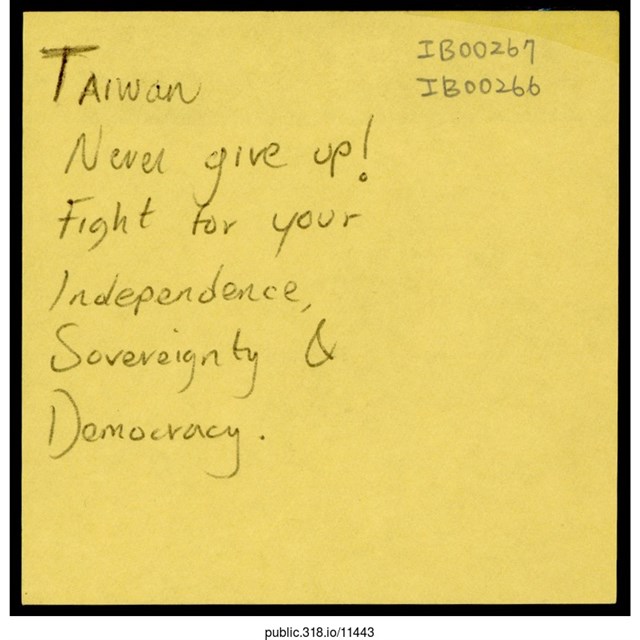 IB00267
IB00266
Taiwan
Never give up!
Fight for your
Independence,
Sovereignty &
Democracy.
public.318.io/11443